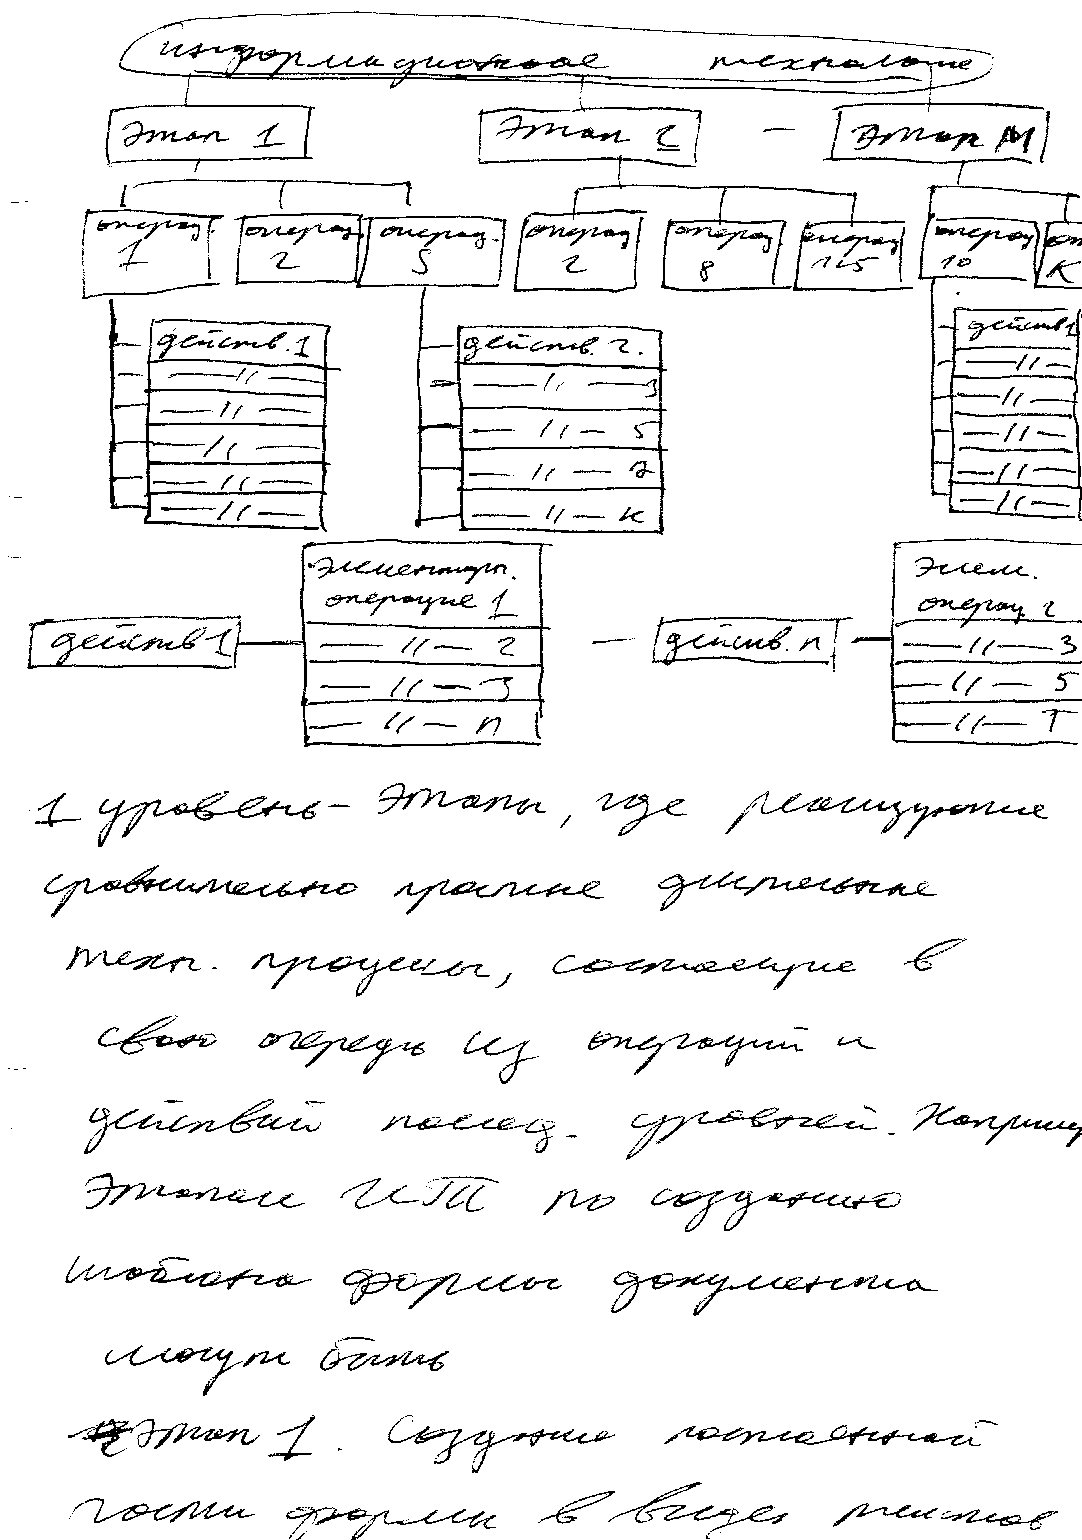 информационная технология
Этап 1 Этап 2 — Этап М
операц. 1 операц. 2 операц. 5 операц 2 операц 8 операц 125 операц 10 оп К
действ. 1 действ. 2. действ 1
— 〃 — — 〃 — 3 — 〃 —
— 〃 — — 〃 — 5 — 〃 —
— 〃 — — 〃 — 7 — 〃 —
— 〃 — — 〃 — К — 〃 —
— 〃 — — 〃 —
Элементарн. операция 1 Элем. операц 2
действ 1 — 〃 — 2 — действ. n — 〃 — 3
— 〃 — 3 — 〃 — 5
— 〃 — n — 〃 — Т
1 уровень - Этапы, где реализуются
сравнительно длительные
техн. процессы, состоящие в
свою очередь из операций и
действий послед. уровней. Наприм
Этапами ИТ по созданию
шаблона формы документа
могут быть
Этап 1. Создание постоянной
части формы в виде текстов